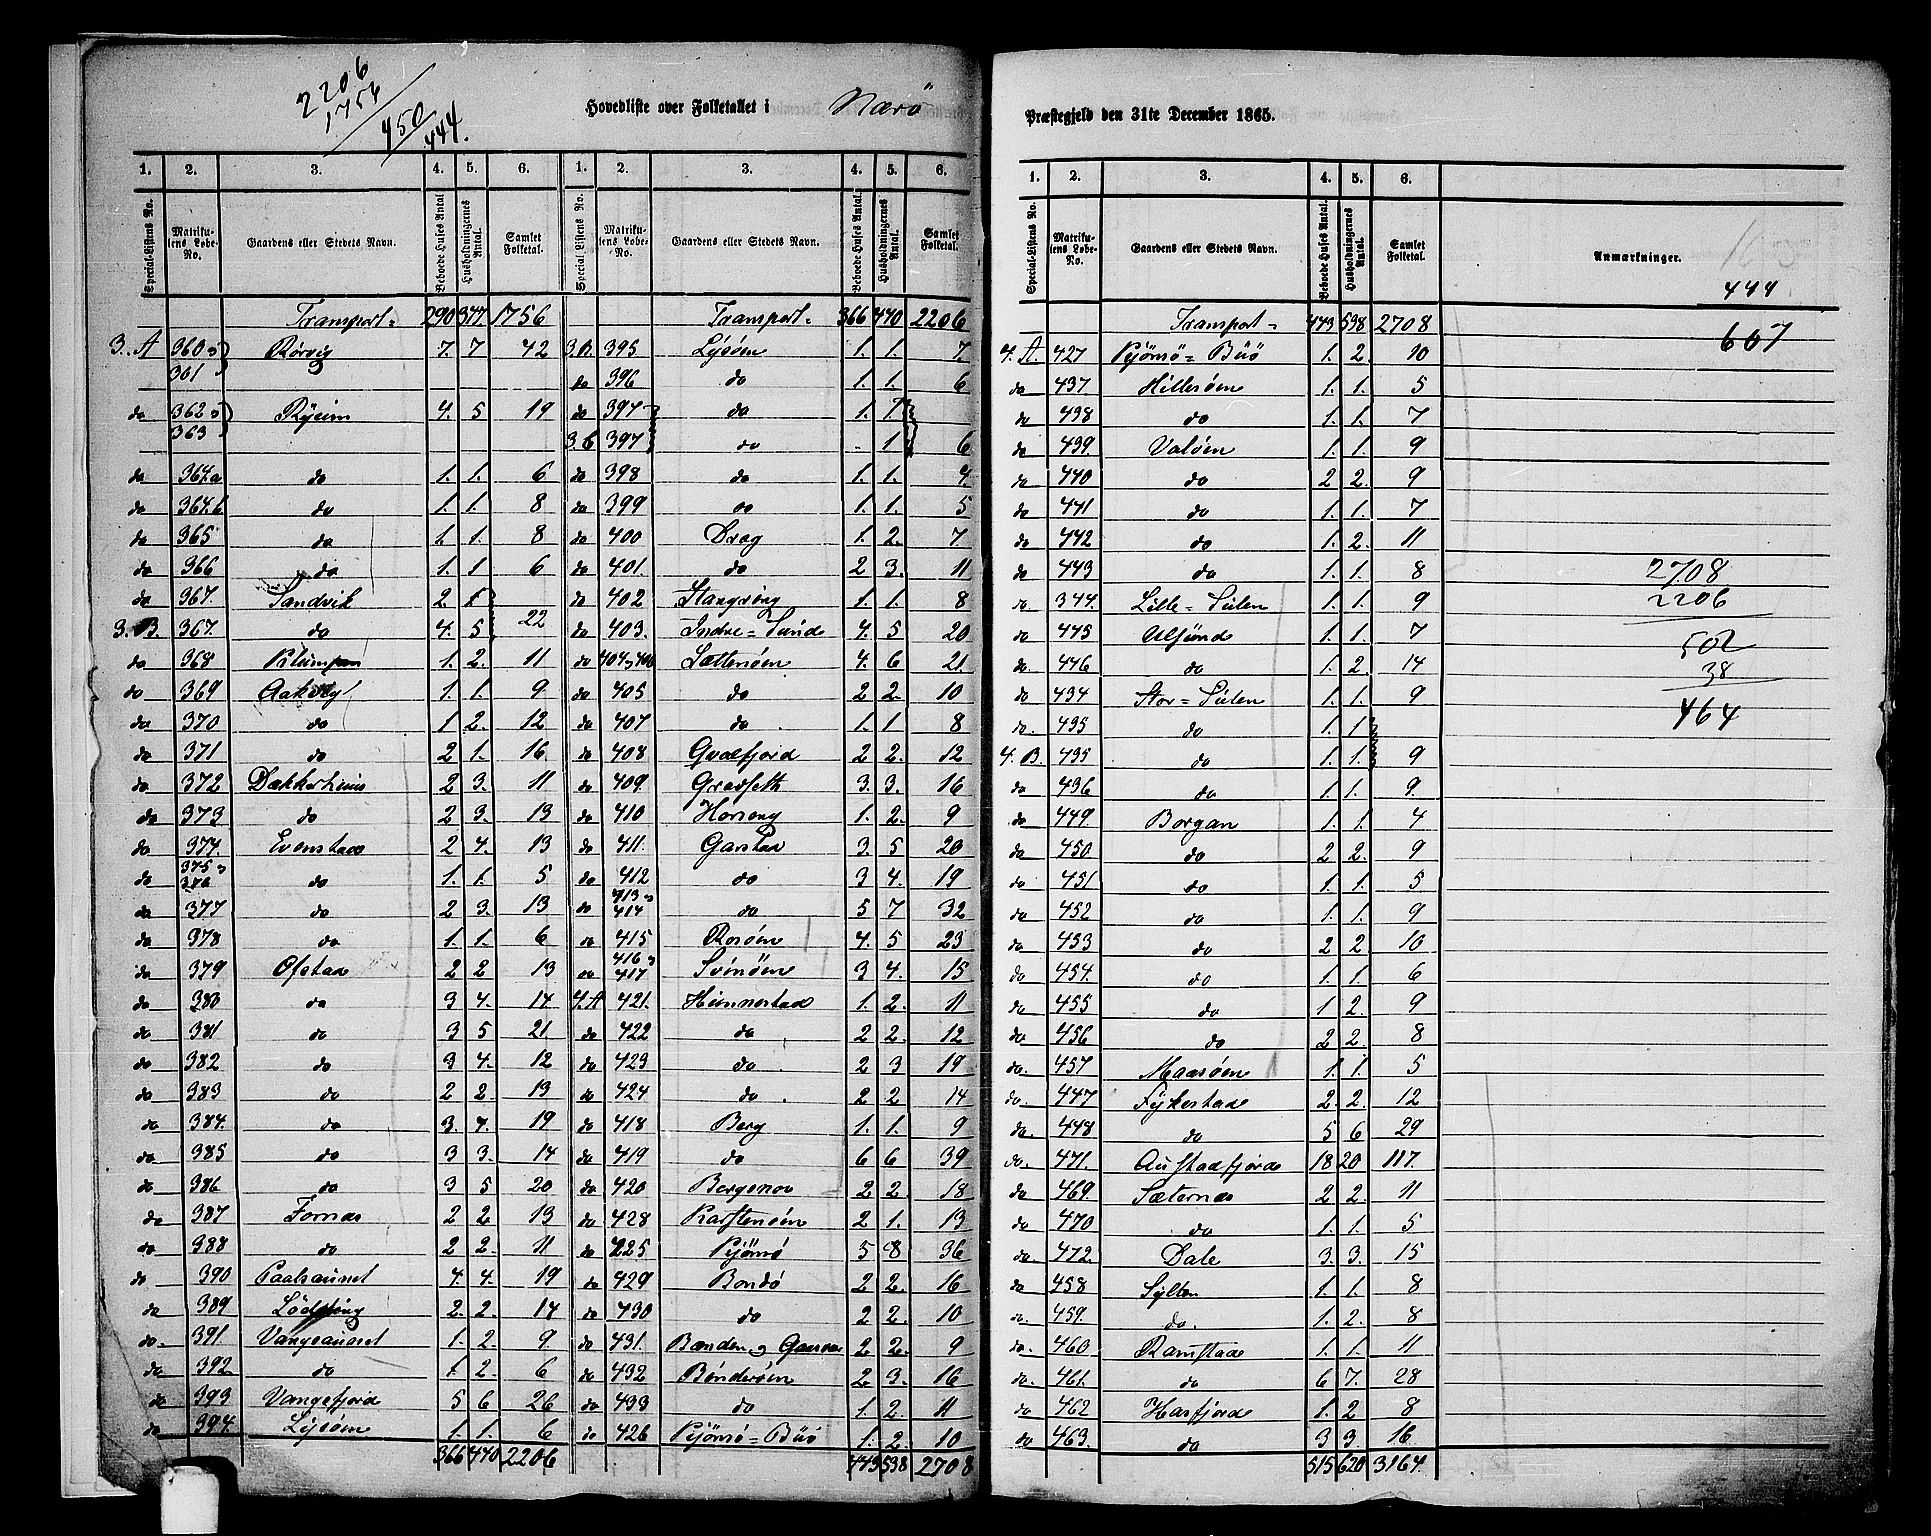 2206
1756
450
444.
Hovedliste over Folketallet i Nærö
1. 2. 3. 4. 5. 6. 1. 2. 3. 4. 5. 6.
Special-Listens No. Matrikulens Løbe-No. Gaardens eller Stedets Navn. Beboede Huses Antal Husholdningernes Antal. Samlet Folketal. Special Listens No. Matrikulens Løbe-No. Gaardens eller Stedets Navn. Beboede Huses Antal. Husholdningernes Antal. Samlet Folketal.
Transport = 290 377. 1756 Transport = 366 470 2206
3. A 360 og 361 Rörvig 7. 7 42 3.B. 395 Lysöen 1. 1. 7.
do 396 do 1. 1. 6
do 362 og 363 Ryeim 4. 5 19 do 397 do 1. 7
3.C 397 do 1 6
do 364a do 1. 1. 6 do 398 do 1. 1. 4.
do 364.b do 1. 1. 8 do 399 do 1. 1. 5
do 365 do 1. 1. 8 do 400 Drag 1. 2. 7.
do 366 do 1. 1 6 do 401. do 2 3. 11
do 367. Sandvik 2 1 do 402 Stangröng 1. 1. 8
3. B. 367. do 4. 5 22 do 403. Indre = Sunde 4. 5 20
do 368 Klumpen 1. 2. 11 do 404 og 406 Sattenöen 4. 6 21.
do 369 Aakvig 1. 1. 9. do 405 do 2 2. 10
do 370 do 1 2. 12 do 407 do 1. 1 8
do 371 do 2 1. 16. do 408 Qvalfjord 2 2. 12
do 372 Dækkerhuus 2 3. 11 do 409. Gravseth 3. 3. 16
do 373 do 2 3. 13 do 410 Horseng 1. 2 9
do 374. Evenstad 2 4. 13 do 411. Garstad 3. 5 20
do 375 og 376 do 1. 1. 5 do 412 do 3 4. 19
do 377 do 2 3. 13 do 413 og 414 do 5 7 32
do 378 do 1. 1. 6 do 415 Rosöen 4. 5 23
do 379 Ofstad 2 2 13 do 416 og 417 Svinöen 3 4. 15
do 380 do 3 4. 14 4.A 421. Hunnestad 1. 2. 11
do 381 do 3 5 21. do 422 do 2 2. 12
do 382 do 3 4. 12 do 423 do 2 3 19
do 383 do 2 2. 13 do 424 do 2 2 14
do 384. do 3 4. 19 do 418 Berg 1. 1. 9
do 385 do 3 3. 14 do 419 do 6 6 39
do 386 do 3 5 20 do 420 Bergsnov 2 2. 18
do 387 Fornæs 2 2 13 do 428 Karstenöen 2 1. 13
do 388 do 2 2. 11 do 425 Kjönsö 5 8 36
do 390 Paalsaunet 4. 4. 19 do 429 Bondö 2 2. 16
do 389 2. 2. 14 do 430 do 2 2. 10
do. 391. Vangsaunet 1. 2. 9. do 431. Bænden og 2 2. 9
do 392 do 1. 2. 6 do 432 Böndesöen 2 3. 16
do 393 Vangsfjord 5 6 26 do 433 do 1. 2. 11
do 394. Lysöen 1. 1. 6 do 426 Kjönsö = Buö 1. 2. 10
366 470 2206 443 538 2708
Præstegjeld den 31te December 1865.
1. 2. 3. 4. 5. 6.
Special-Listens No. Matrikulens Løbe-No. Gaardens eller Stedets Navn. Beboede Huses Antal. Husholdningernes Antal. Samlet Folketal. Anmærkninger.
444
607
Transport = 443 538 2708
4. A. 427 Kjönsö = Buö 1. 2. 10
do 437 Hillesöen 1. 1. 5
do 438 do 1. 1. 7
do 439. Valöen 1. 1. 9
do 440 do 2 2. 9
do 441 do 1. 1. 7
do 442 do 1. 2. 11
do 443 do 1. 1. 8
do 344. Lille = Sulen 1. 1. 9
do 445 Ulsund 1. 1. 7
do 446 do 1. 2. 14
do 434 Stor = Sulen 1. 1. 9
do. 435 do 1. 1.
4. B. 435 do 1. 1. 9
do 436 do 1. 1. 9.
do 449. Borgan 1. 1. 4
do 450. do 2 2. 9
do 451 do 1. 1. 5
do 452 do 1. 1. 9
do 453 do 2 2 10
do 454. do 1. 1 6
do 455 do 1 2. 9
do 456 do 2 2. 8
do. 457 Maasöen 1. 1. 5
do. 447 Fykestad 2. 2. 12
do. 448 do 5 6 29
do. 471. Austadfjord 18 20 117.
do 469. Sæternæs 2 2. 11
do 470 do 1. 1. 5
do 472. Dale 3. 3. 15
do 458 Sylten 1. 1. 8
do. 459. do. 1. 2. 8
do. 460 Ramstad 1. 1. 11
do. 461. do 6 7. 28
do. 462 Harfjord 1. 2 8
do 463. do 3 3. 16
515 620 3164.
2708
2206
502
38
464